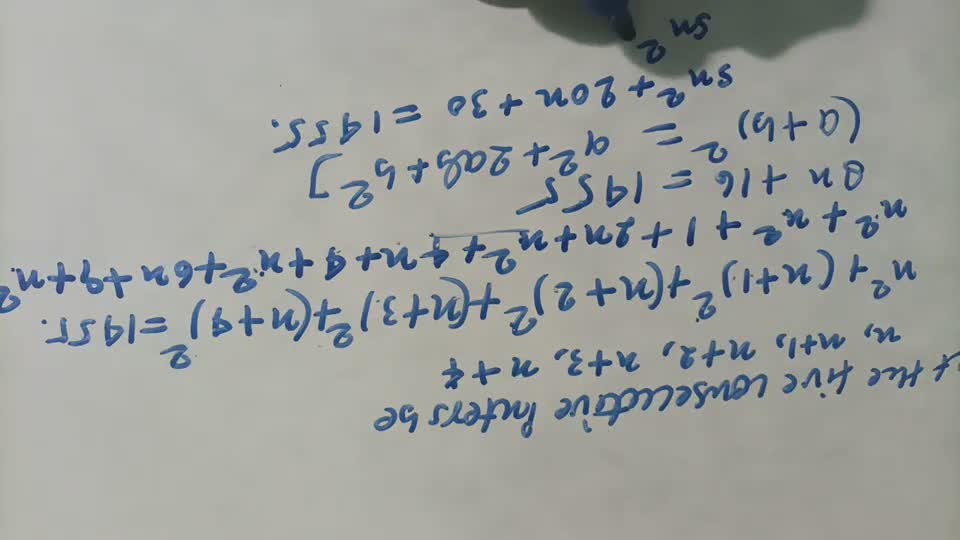 the five consecutive Inters be
n, n+1, n+2, n+3, n+4
n² + (n+1)² + (n+2)² + (n+3)² + (n+4)² = 1955.
n² + n² + 1 + 2n + n² + 4n + 4 + n² + 6n + 9 + n²
8n + 16 = 1955
(a+b)² = a² + 2ab + b²]
5n² + 20n + 30 = 1955.
5n²